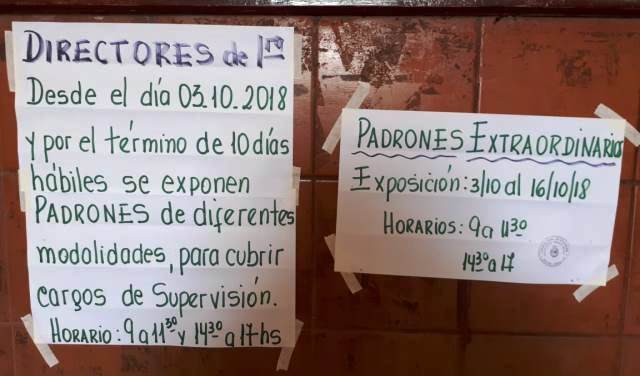 DIRECTORES de 1ra
Desde el día 03.10.2018
y por el término de 10 días
hábiles se exponen
PADRONES de diferentes
modalidades, para cubrir
cargos de Supervisión.
HORARIO: 9 a 11³⁰ y 14³⁰ a 17 hs
PADRONES EXTRAORDINARIOS
Exposición: 3/10 al 16/10/18
HORARIOS: 9 a 11³⁰
14³⁰ a 17